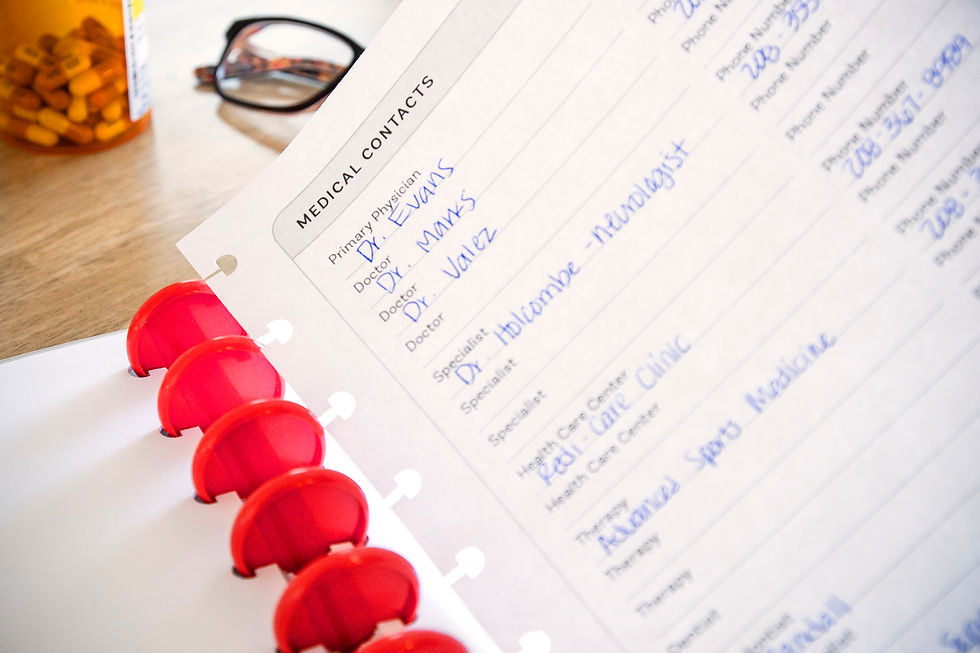 MEDICAL CONTACTS
Primary Physician
Dr. Evans
Doctor
Dr. Marks
Doctor
Dr. Valez
Doctor
Specialist
Dr. Holcombe - neurologist
Specialist
Specialist
Health Care Center
Redi-Care Clinic
Health Care Center
Therapy
Advanced Sports Medicine
Therapy
Therapy
Dentist
Phone
208-
Phone Number
Phone Number
208-333
Phone Number
Phone Number
Phone Number
208-367-8989
Phone Number
Phone Number
208-
Phone